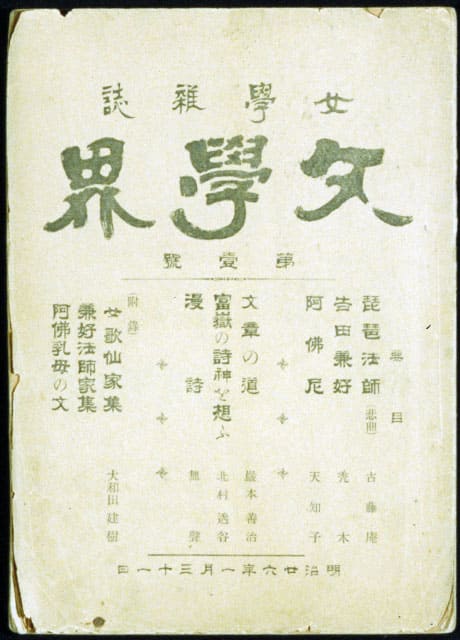 女學雜誌
文學界
第壹號
要目
琵琶法師（悲曲） 古藤庵
吉田兼好 禿木
阿佛尼 天知子
文章の道 巖本善治
富嶽の詩神を想ふ 北村透谷
漫詩 無聲
（附錄）
女歌仙家集 大和田建樹
兼好法師家集
阿佛乳母の文
明治廿六年一月三十一日